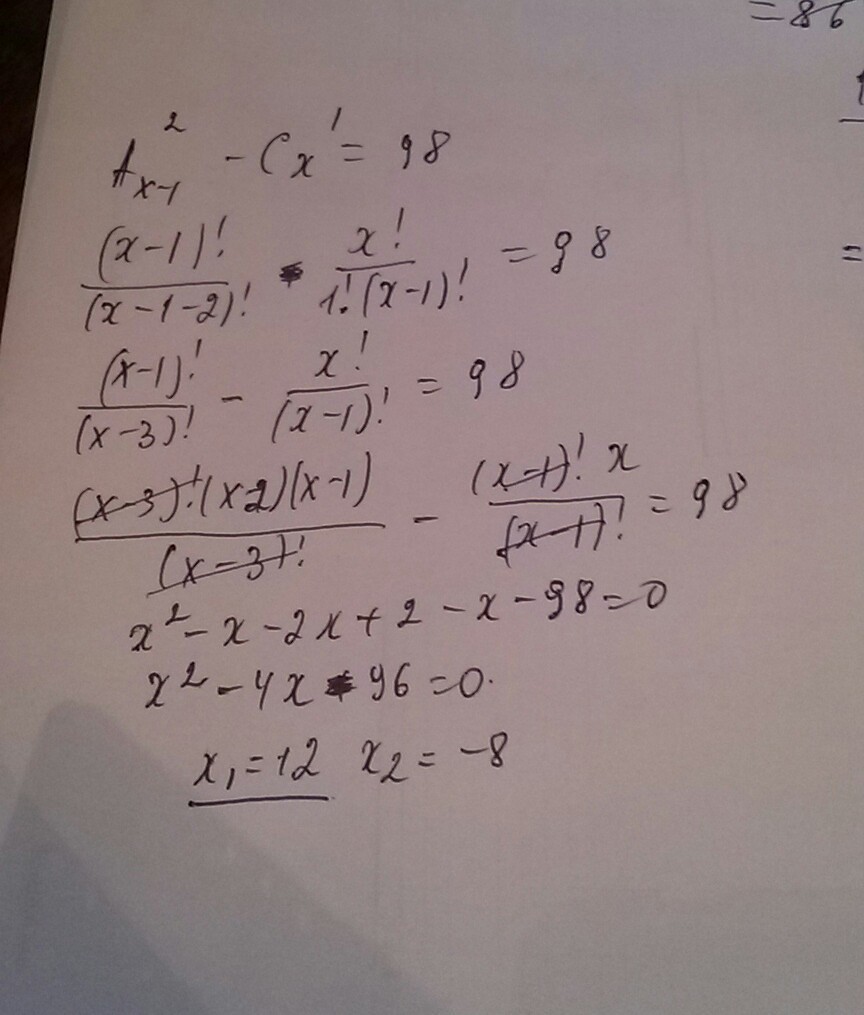 = 86
A²ₓ₋₁ - Cₓ¹ = 98
(x-1)!/(x-1-2)! - x!/1!(x-1)! = 98
=
(x-1)!/(x-3)! - x!/(x-1)! = 98
(x-3)!(x-2)(x-1)/(x-3)! - (x-1)! x/(x-1)! = 98
x² - x - 2x + 2 - x - 98 = 0
x² - 4x - 96 = 0.
x₁ = 12 x₂ = -8